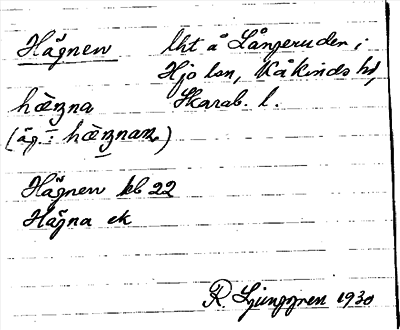 Hägnen lht å Långeruden i
Hjo lsn, Kåkinds hd,
hæ̀ŋna Skarab. l.
(äg. : hæ̀ŋnanz)
Hägnen kb 22
Hägna ek
R Ljunggren 1930